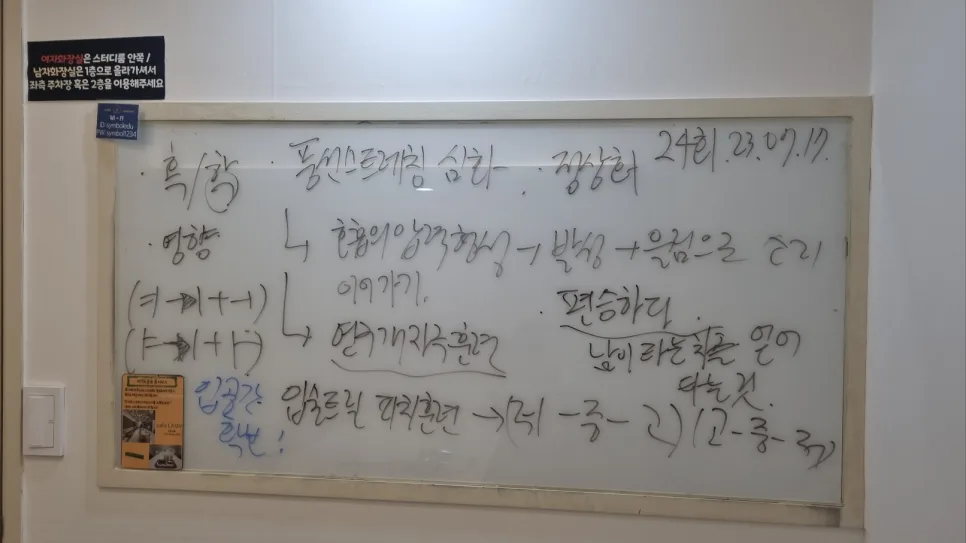 여자화장실은 스터디룸 안쪽 /
남자화장실은 1층으로 올라가셔서
좌측 주차장 혹은 2층을 이용해주세요
WI-FI
ID:symboledu
PW:symbol1234
· 흑/학 · 풍선스트레칭 심화 · 정상화 24회. 23. 07. 17.
· 영향
↳ 호흡의 압력형성 → 발성 → 울림으로 소리
이어가기.
(ㅕ→ㅣ+ㅓ)
(ㅑ→ㅣ+ㅏ)
↳ 연구개자극훈련
· 편승하다.
남이 타는 차를 얻어
타는 것.
입술트릴 파지훈련 → (저-중-고) (고-중-저)
입공간
확보!